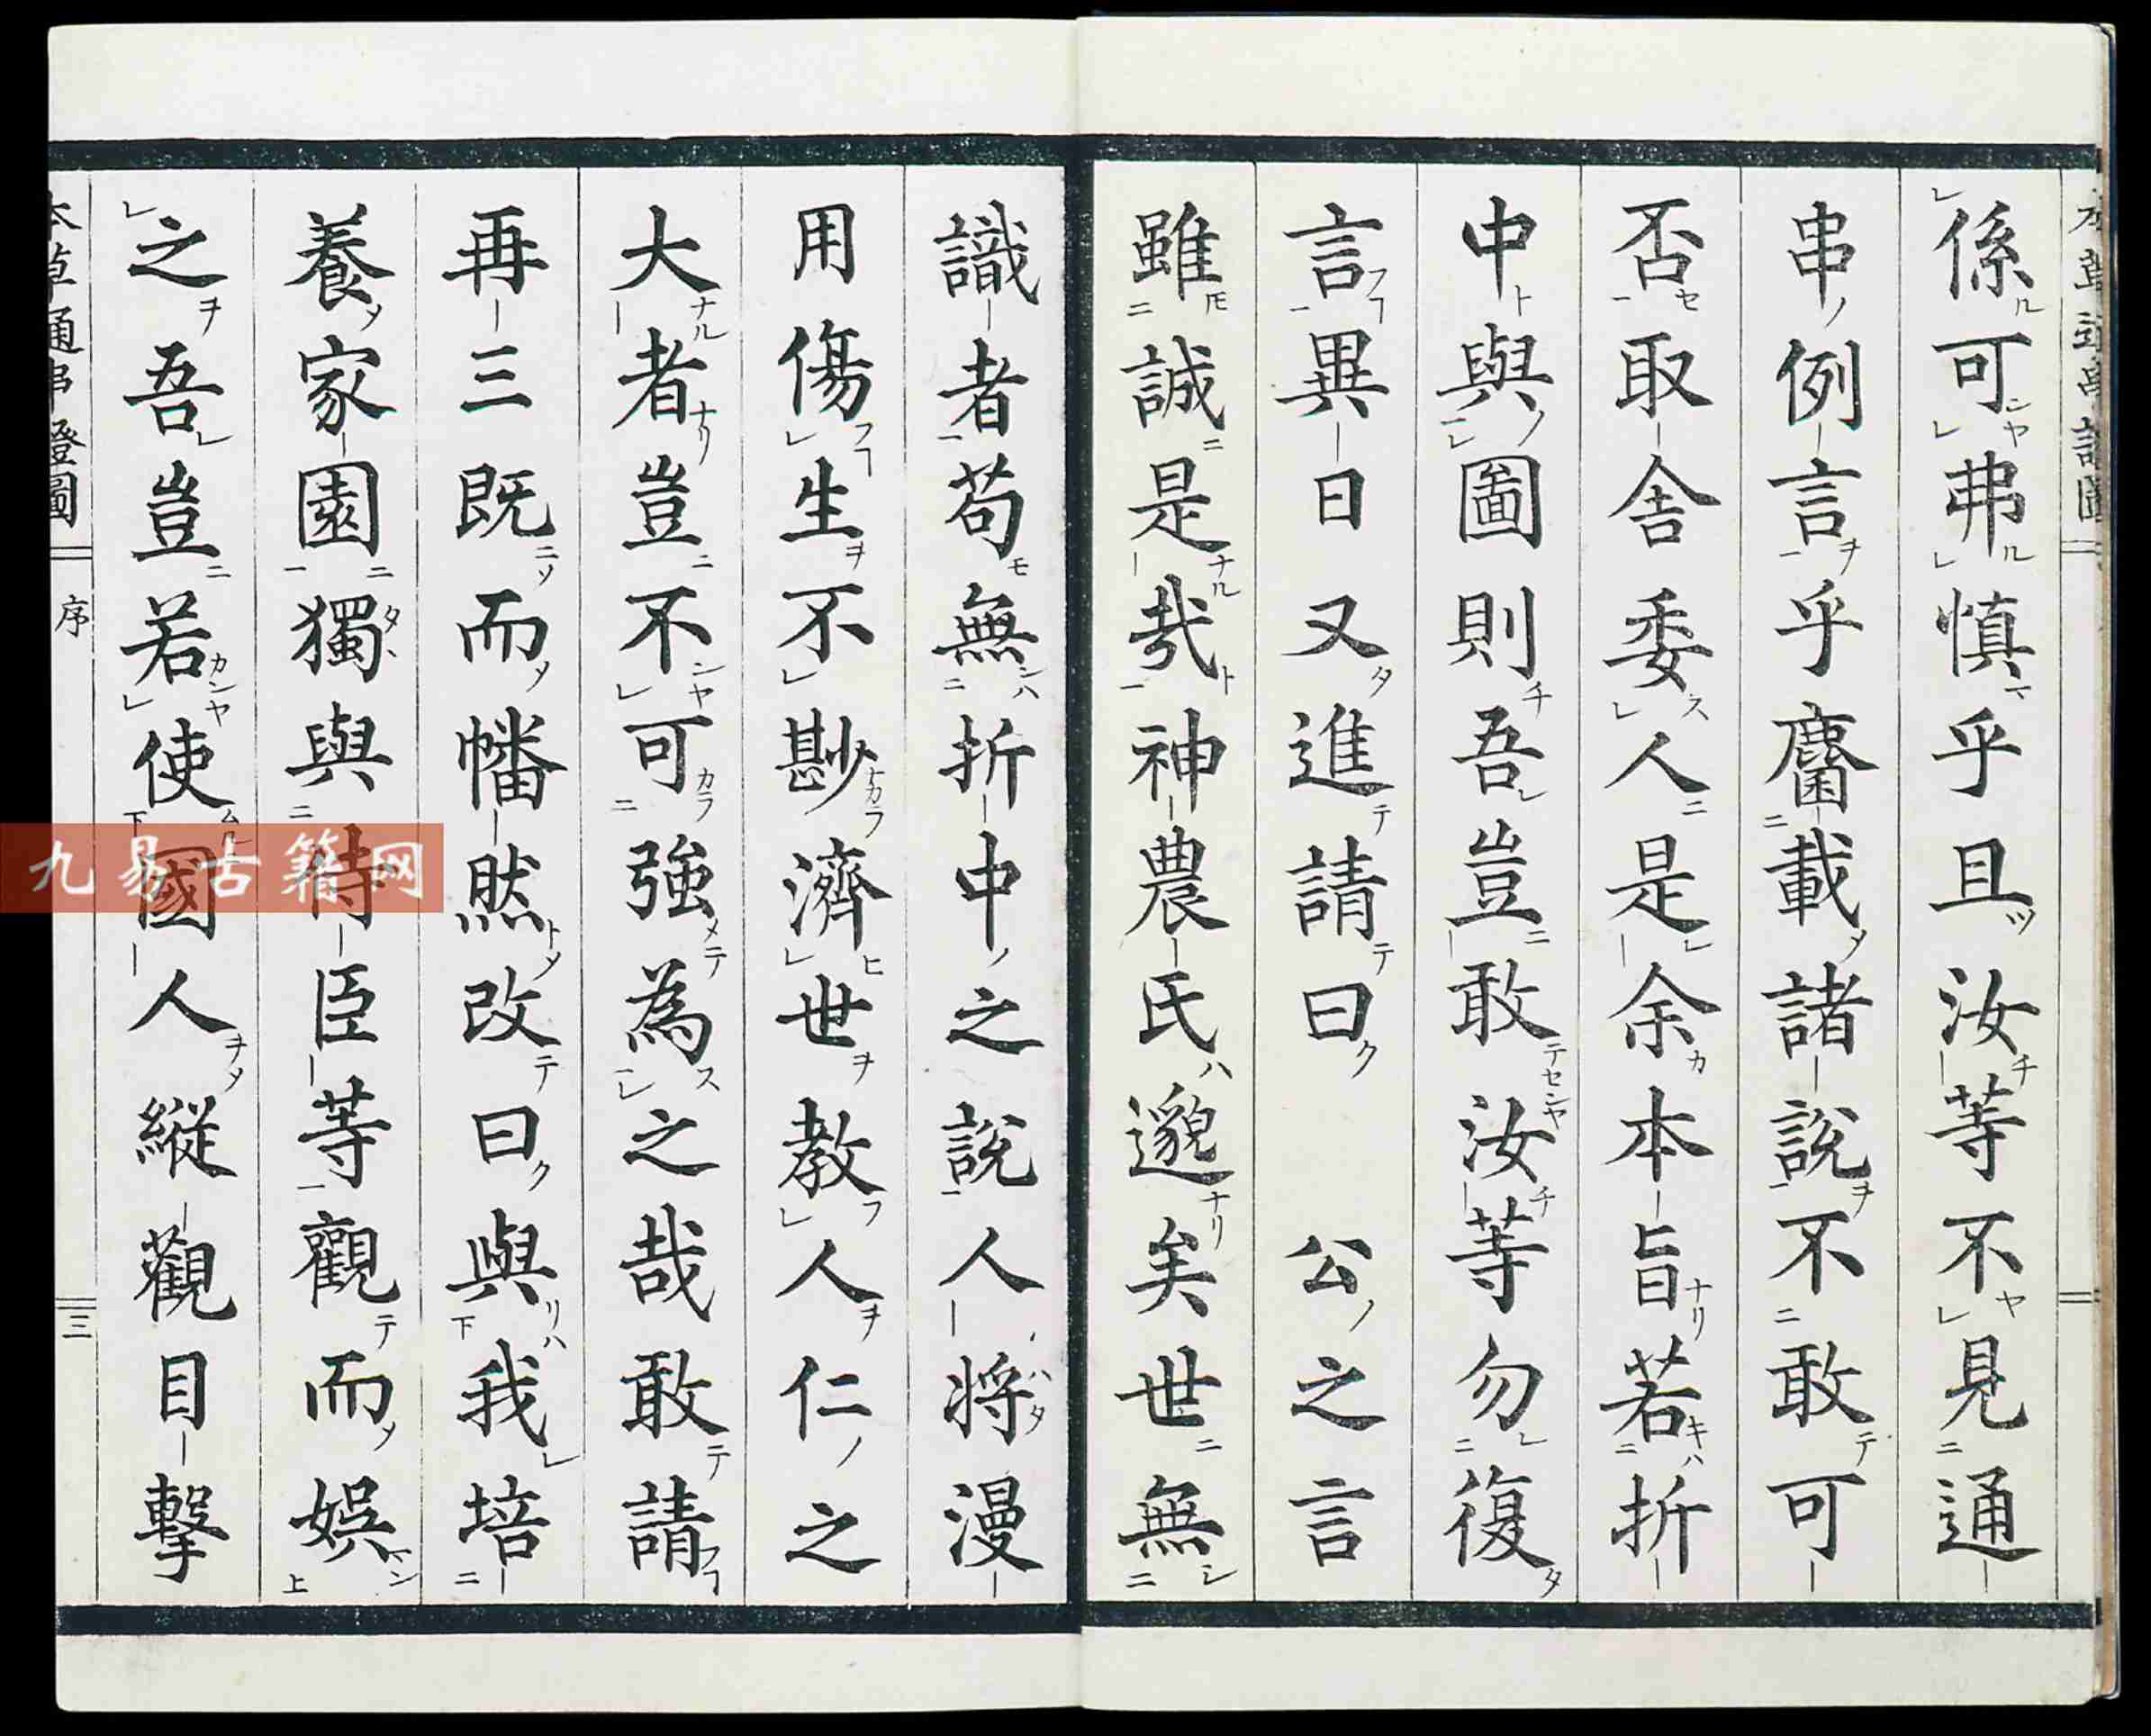 係可弗慎乎且汝等不見通
串例言乎麕載諸說不敢可
否取舍委人是余本旨若折
中與圖則吾豈敢汝等勿復
言異日又進請曰公之言
雖誠是哉神農氏邈矣世無
識者苟無折中之說人將漫
用傷生不尠濟世教人仁之
大者豈不可強為之哉敢請
再三既而幡然改曰與我培
養家園獨與侍臣等觀而娛
之吾豈若使國人縱觀目擊
本草通串證圖
序
三
九易古籍网